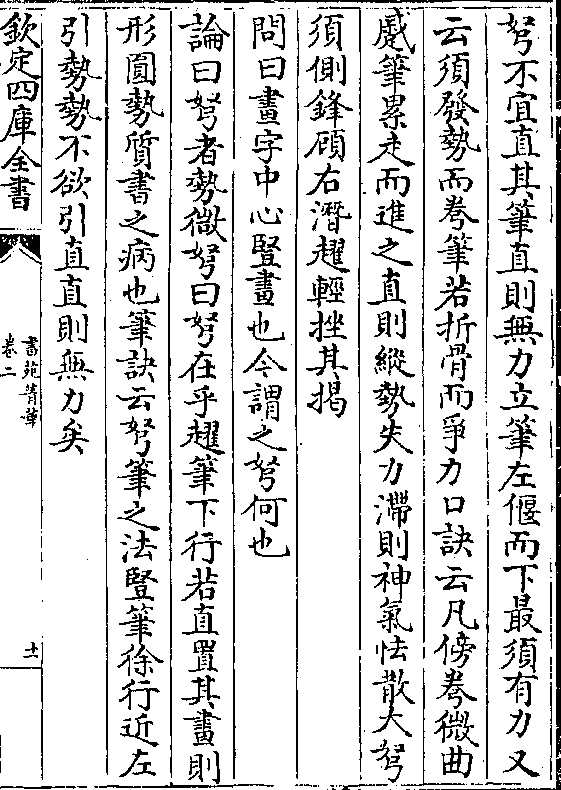 弩不宜直其筆直則無力立筆左偃而下最須有力又
云須發勢而捲筆若折骨而爭力口訣云凡傍捲微曲
蹙筆累走而進之直則縱勢失力滯則神氣怯散大弩
須側鋒顧右潛趯輕挫其揭
問曰畫字中心豎畫也今謂之弩何也
論曰弩者勢微弩曰弩在乎趯筆下行若直置其畫則
形圓勢質書之病也筆訣云弩筆之法豎筆徐行近左
引勢勢不欲引直直則無力矣
欽定四庫全書
書苑菁華
卷二
十一